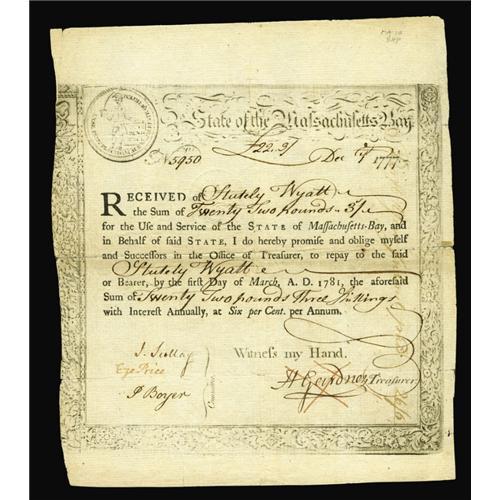 State of the Massachusetts Bay
No 5950 £22.3/ Dec 1777
RECEIVED of Stutely Wyatt
the Sum of Twenty Two pounds 3/
for the Use and Service of the STATE of Massachusetts-Bay, and
in Behalf of said STATE, I do hereby promise and oblige myself
and Successors in the Office of Treasurer, to repay to the said
Stutely Wyatt
or Bearer, by the first Day of March, A. D. 1781, the aforesaid
Sum of Twenty Two pounds Three Shillings
with Interest Annually, at Six per Cent. per Annum.
Witness my Hand,
Eze Price
P Boyer
Committee
H Gardner Treasurer